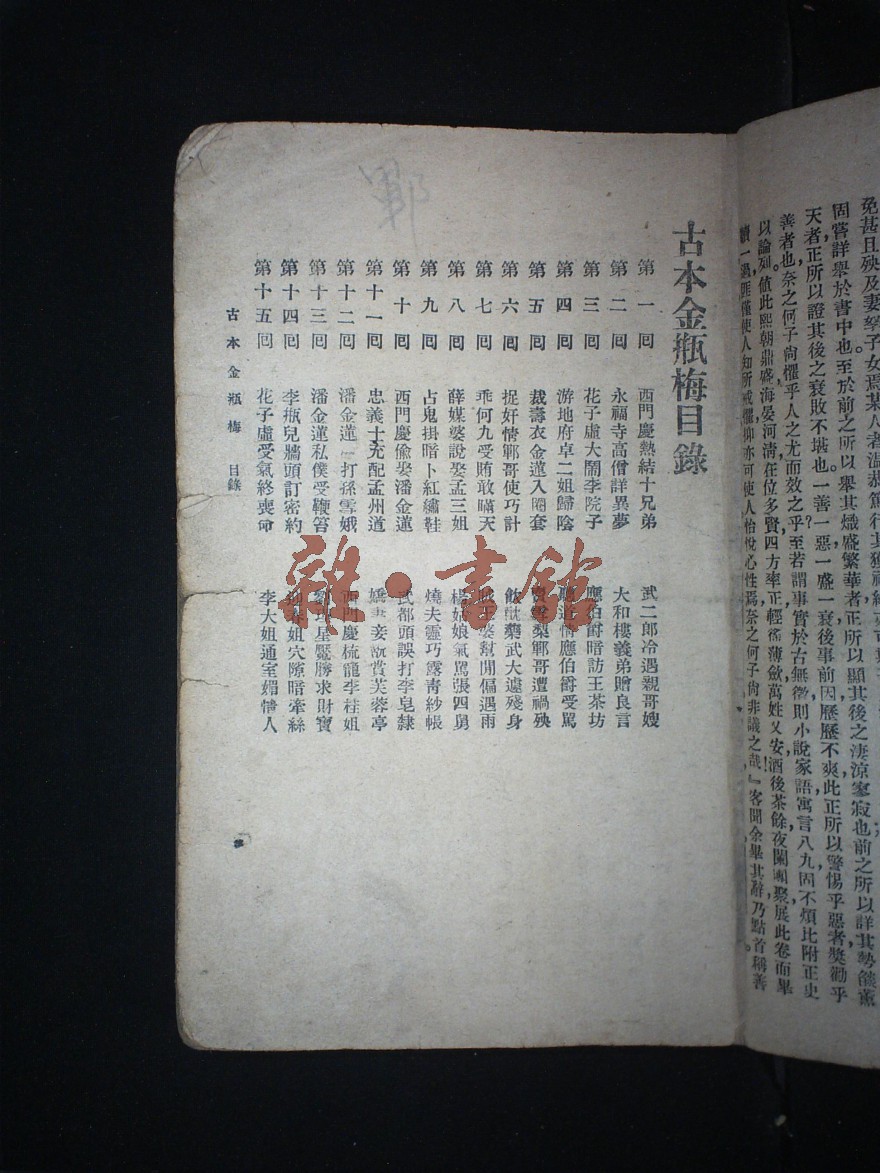 免甚且殃及妻孥子女焉某人者溫恭篤行其獲福
固嘗詳舉於書中也至於前之所以舉其熾盛繁華者正所以顯其後之淒涼寥寂也前之所以詳其勢燄薰
天者,正所以證其後之衰敗不堪也。一善一惡,一盛一衰,後事前因,歷歷不爽,此正所以警惕乎惡者,獎勸乎
善者也奈之何子尙懼乎人之尤而效之乎?至若謂事實於古無徵,則小說家語,寓言八九,固不煩比附正史
以論列。値此熙朝鼎盛,海晏河淸,在位多賢,四方率正,輕徭薄斂,萬姓乂安,酒後茶餘,夜闌團聚,展此卷而畢
讀一過,匪僅使人知所戒懼,抑亦可使人怡悅心性焉。奈之何子尙非議之哉!』客聞余畢其辭,乃點首稱善。
鄆
古本金瓶梅目錄
第一回 西門慶熱結十兄弟 武二郎冷遇親哥嫂
第二回 永福寺高僧詳異夢 大和樓義弟贈良言
第三回 花子虛大鬧李院子 應伯爵暗訪王茶坊
第四回 游地府卓二姐歸陰 應伯爵受罵
第五回 裁壽衣金蓮入圈套 梨鄆哥遭禍殃
第六回 捉奸情鄆哥使巧計 飲酖藥武大遽殘身
第七回 乖何九受賄敢瞞天 王婆幫閒偏遇雨
第八回 薛媒婆說娶孟三姐 楊姑娘氣罵張四舅
第九回 占鬼掛暗卜紅繡鞋 燒夫靈巧露靑紗帳
第十回 西門慶偸娶潘金蓮 武都頭誤打李皂隸
第十一回 忠義士充配孟州道 妻妾翫賞芙蓉亭
第十二回 潘金蓮一打孫雪娥 西門慶梳籠李桂姐
第十三回 潘金蓮私僕受鞭笞 劉理星魘勝求財寶
第十四回 李瓶兒牆頭訂密約 迎春姐穴隙暗牽絲
第十五回 花子虛受氣終喪命 李大姐通室媚情人
古本金瓶梅 目錄
雜·書館